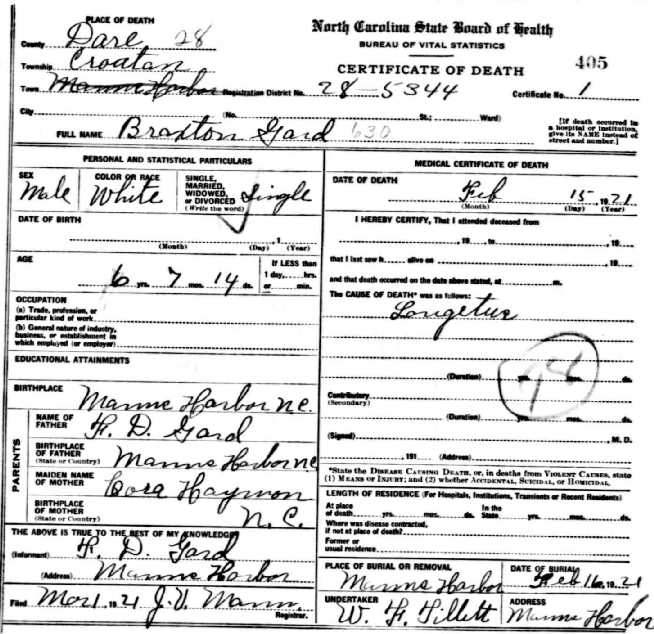 PLACE OF DEATH
County Dare 28
Township Croatan
Town Manns Harbor Registration District No. 28-5344 Certificate No. 1
North Carolina State Board of Health
BUREAU OF VITAL STATISTICS
CERTIFICATE OF DEATH
405
City (No. St.; Ward)
[If death occurred in a hospital or institution, give its NAME instead of street and number.]
FULL NAME Braxton Gard 630
PERSONAL AND STATISTICAL PARTICULARS
SEX Male
COLOR OR RACE White
SINGLE, MARRIED, WIDOWED, OR DIVORCED (Write the word) Single
DATE OF BIRTH
, 1
(Month) (Day) (Year)
AGE
6 yrs. 7 mos. 14 ds.
If LESS than 1 day, hrs. or min.
OCCUPATION
(a) Trade, profession, or particular kind of work
(b) General nature of industry, business, or establishment in which employed (or employer)
EDUCATIONAL ATTAINMENTS
BIRTHPLACE Manns Harbor N.C.
PARENTS
NAME OF FATHER F. D. Gard
BIRTHPLACE OF FATHER (State or Country) Manns Harbor NC
MAIDEN NAME OF MOTHER Cora Haymon
BIRTHPLACE OF MOTHER (State or Country) N.C.
THE ABOVE IS TRUE TO THE BEST OF MY KNOWLEDGE
(Informant) F. D. Gard
(Address) Manns Harbor
Filed Mar 1, 1921 J. V. Mann.
Registrar.
MEDICAL CERTIFICATE OF DEATH
DATE OF DEATH
Feb 15, 1921
(Month) (Day) (Year)
I HEREBY CERTIFY, That I attended deceased from
, 19 to , 19
that I last saw h alive on , 19
and that death occurred on the date above stated, at m.
The CAUSE OF DEATH* was as follows:
Longetus
98
(Duration) yrs. mos. ds.
Contributory
(Secondary)
(Duration) yrs. mos. ds.
(Signed) , M. D.
, 191 (Address)
*State the DISEASE CAUSING DEATH, or, in deaths from VIOLENT CAUSES, state (1) MEANS OF INJURY; and (2) whether ACCIDENTAL, SUICIDAL, or HOMICIDAL.
LENGTH OF RESIDENCE (For Hospitals, Institutions, Transients or Recent Residents)
At place of death yrs. mos. ds. In the State yrs. mos. ds.
Where was disease contracted, if not at place of death?
Former or usual residence
PLACE OF BURIAL OR REMOVAL Manns Harbor
DATE OF BURIAL Feb 16, 1921
UNDERTAKER W. F. Tillett
ADDRESS Manns Harbor